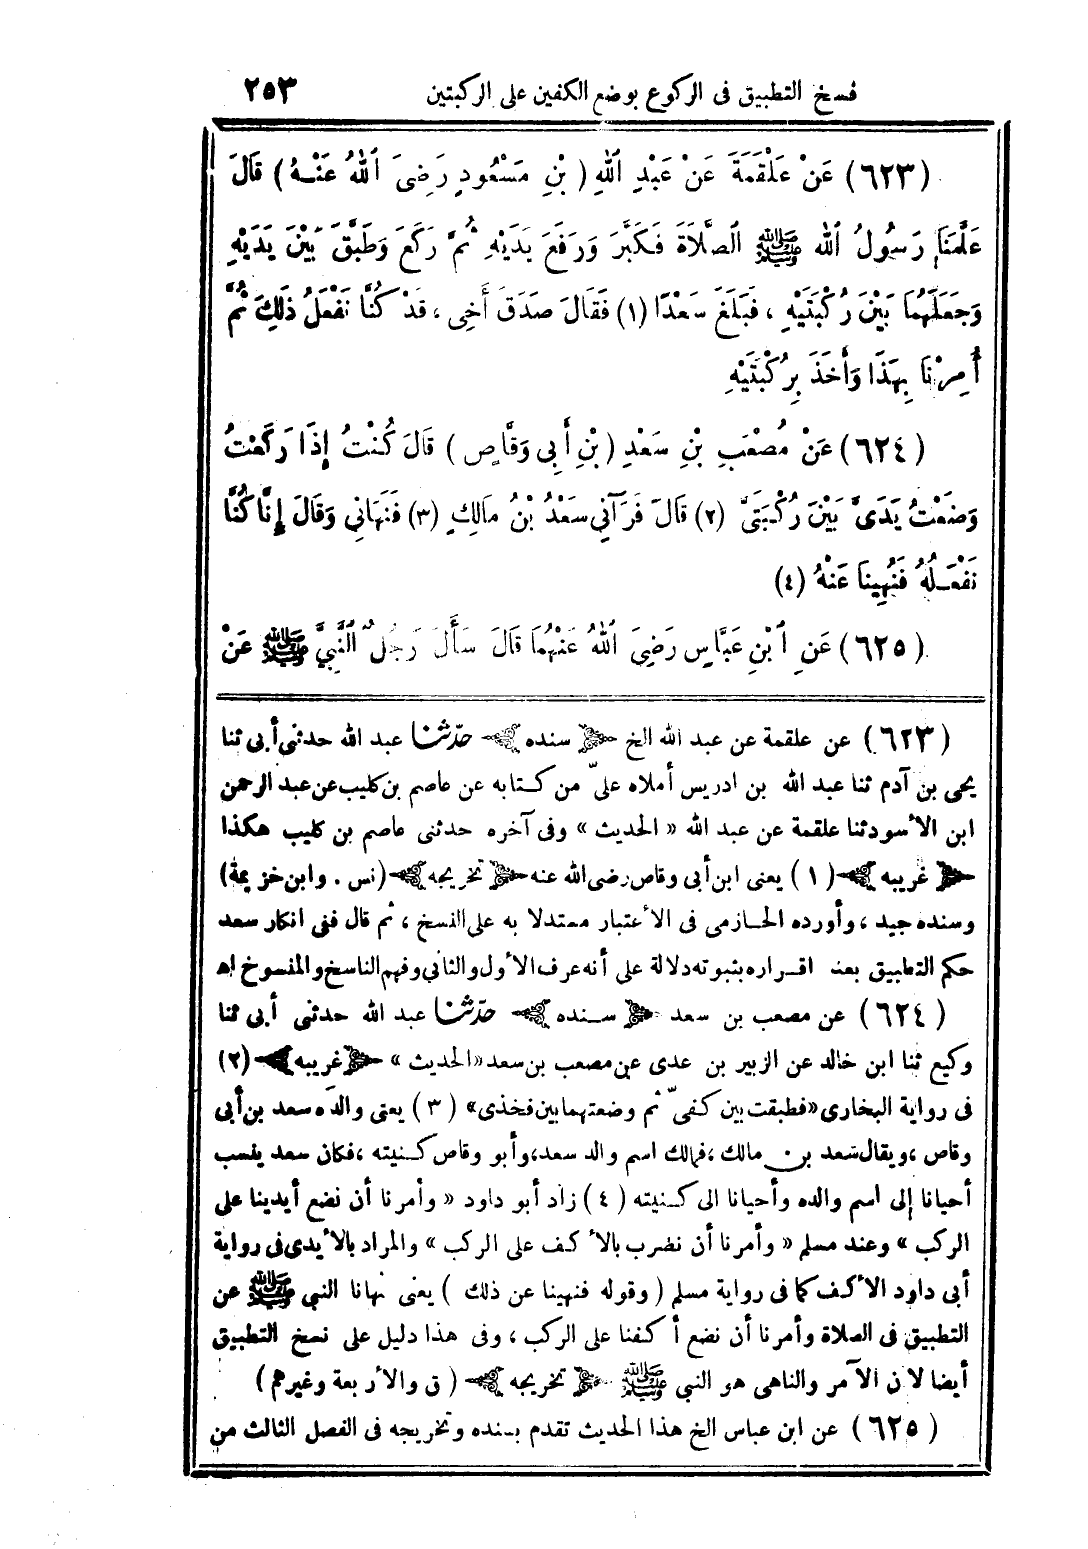 فسخ التطبيق فى الركوع بوضع الكفين على الركبتين ٢٥٣
(٦٢٣) عَنْ عَلْقَمَةَ عَنْ عَبْدِ اللهِ (بْنِ مَسْعُودٍ رَضِىَ اللهُ عَنْهُ) قَالَ
عَلَّمَنَا رَسُولُ اللهِ ﷺ الصَّلَاةَ فَكَبَّرَ وَرَفَعَ يَدَيْهِ ثُمَّ رَكَعَ وَطَبَّقَ بَيْنَ يَدَيْهِ
وَجَعَلَهُمَا بَيْنَ رُكْبَتَيْهِ ، فَبَلَغَ سَعْدًا (١) فَقَالَ صَدَقَ أَخِى ، قَدْ كُنَّا نَفْعَلُ ذَلِكَ ثُمَّ
أُمِرْنَا بِهَذَا وَأَخَذَ بِرُكْبَتَيْهِ
(٦٢٤) عَنْ مُصْعَبِ بْنِ سَعْدِ (بْنِ أَبِى وَقَّاصٍ) قَالَ كُنْتُ إِذَا رَكَعْتُ
وَضَعْتُ يَدَىَّ بَيْنَ رُكْبَتَىَّ (٢) قَالَ فَرَآنِي سَعْدُ بْنُ مَالِكٍ (٣) فَنَهَانِي وَقَالَ إِنَّا كُنَّا
نَفْعَلُهُ فَنُهِينَا عَنْهُ (٤)
(٦٢٥) عَنِ ابْنِ عَبَّاسٍ رَضِىَ اللهُ عَنْهُمَا قَالَ سَأَلَ رَجُلٌ النَّبِيَّ ﷺ عَنْ
(٦٢٣) عن علقمة عن عبد الله الخ سنده حدّثنا عبد الله حدثنى أبى ثنا
يحيى بن آدم ثنا عبد الله بن ادريس أملاه علىّ من كتابه عن عاصم بن كليب عن عبد الرحمن
ابن الأسود ثنا علقمة عن عبد الله «الحديث» وفى آخره حدثنى عاصم بن كليب هكذا
غريبه (١) يعنى ابن أبى وقاص رضى الله عنه تخريجه (نس . وابن خزيمة)
وسنده جيد ، وأورده الحازمى فى الأعتبار مستدلا به على النسخ ، ثم قال ففى انكار سعد
حكم التطبيق بعد اقراره بثبوته دلالة على أنه عرف الأول والثانى وفهم الناسخ والمنسوخ اه
(٦٢٤) عن مصعب بن سعد سنده حدّثنا عبد الله حدثنى أبى ثنا
وكيع ثنا ابن خالد عن الزبير بن عدى عن مصعب بن سعد «الحديث» غريبه (٢)
فى رواية البخارى «فطبقت بين كفىّ ثم وضعتهما بين فخذى» (٣) يعنى والده سعد بن أبى
وقاص ، ويقال سعد بن مالك ، فمالك اسم والد سعد، وأبو وقاص كنيته ، فكان سعد ينسب
أحيانا إلى اسم والده وأحيانا الى كنيته (٤) زاد أبو داود «وأمرنا أن نضع أيدينا على
الركب» وعند مسلم «وأمرنا أن نضرب بالأكف على الركب» والمراد بالأيدى فى رواية
أبى داود الأكف كما فى رواية مسلم (وقوله فنهينا عن ذلك) يعنى نهانا النبى ﷺ عن
التطبيق فى الصلاة وأمرنا أن نضع أكفنا على الركب ، وفى هذا دليل على نسخ التطبيق
أيضا لان الآمر والناهى هو النبي ﷺ تخريجه (ق والأربعة وغيرهم)
(٦٢٥) عن ابن عباس الخ هذا الحديث تقدم بسنده وتخريجه فى الفصل الثالث من